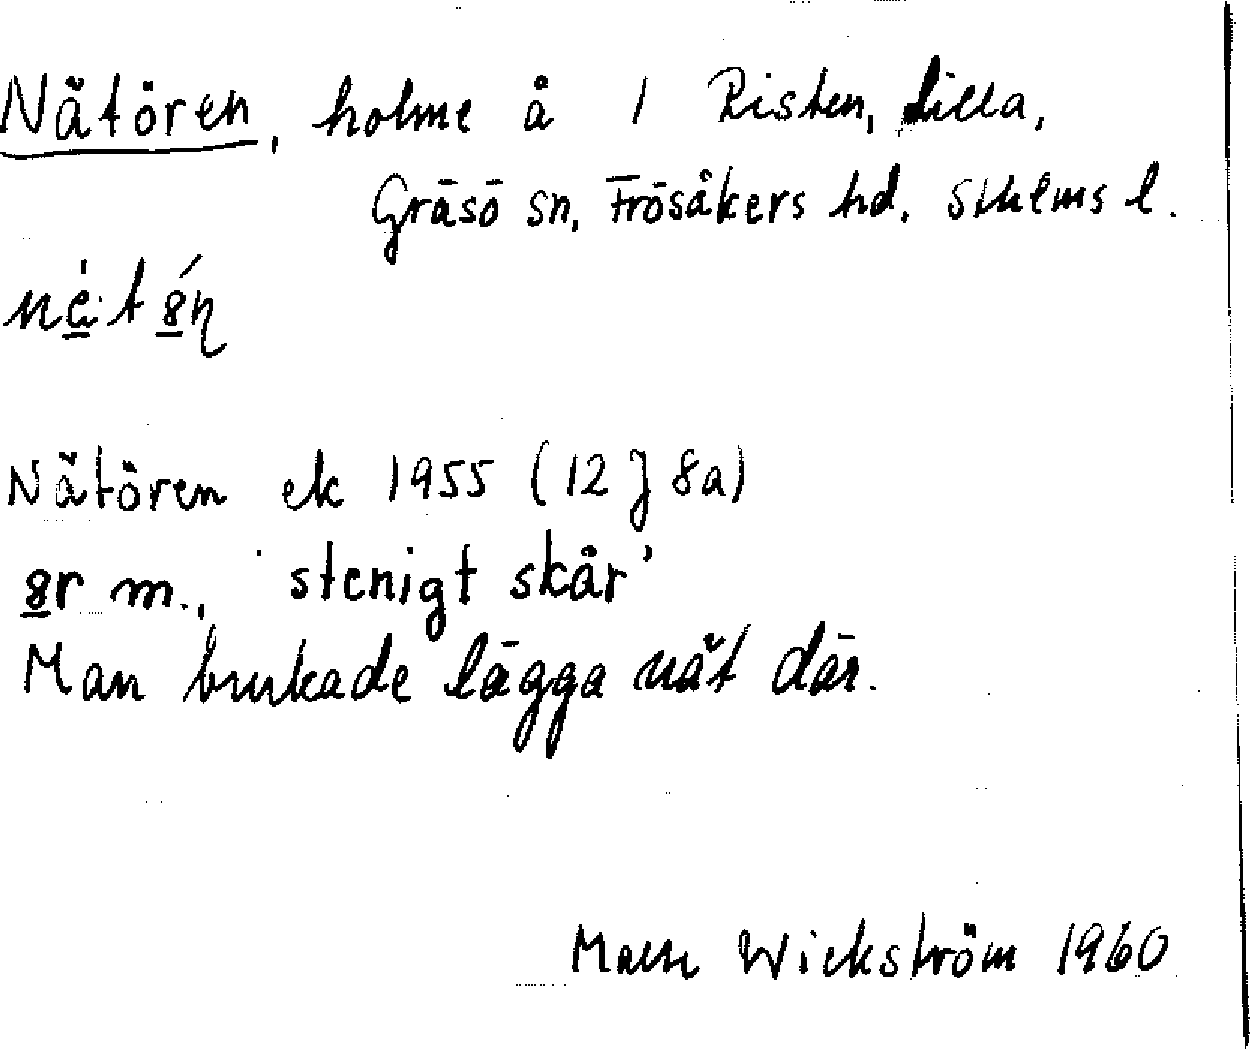 Nätören, holme å 1 Risten, Lilla,
Gräsö sn, Frösåkers hd, Sthlms l.
Nätören ek 1955 (12 J 8a)
8r m., 'stenigt skär'
Man brukade lägga nät där.
Wickström 1960